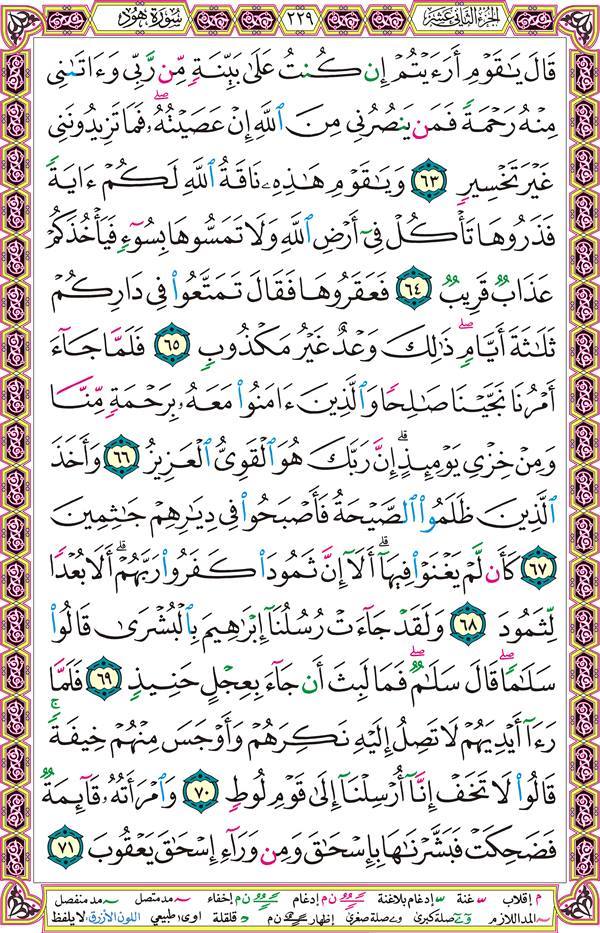 الجزء الثاني عشر ٢٢٩ سورة هود
قَالَ يَٰقَوْمِ أَرَءَيْتُمْ إِن كُنتُ عَلَىٰ بَيِّنَةٍ مِّن رَّبِّي وَءَاتَىٰنِي
مِنْهُ رَحْمَةً فَمَن يَنصُرُنِي مِنَ ٱللَّهِ إِنْ عَصَيْتُهُۥ ۖ فَمَا تَزِيدُونَنِي
غَيْرَ تَخْسِيرٍ ٦٣ وَيَٰقَوْمِ هَٰذِهِۦ نَاقَةُ ٱللَّهِ لَكُمْ ءَايَةً
فَذَرُوهَا تَأْكُلْ فِىٓ أَرْضِ ٱللَّهِ وَلَا تَمَسُّوهَا بِسُوٓءٍ فَيَأْخُذَكُمْ
عَذَابٌ قَرِيبٌ ٦٤ فَعَقَرُوهَا فَقَالَ تَمَتَّعُوا۟ فِي دَارِكُمْ
ثَلَٰثَةَ أَيَّامٍ ۖ ذَٰلِكَ وَعْدٌ غَيْرُ مَكْذُوبٍ ٦٥ فَلَمَّا جَآءَ
أَمْرُنَا نَجَّيْنَا صَٰلِحًا وَٱلَّذِينَ ءَامَنُوا۟ مَعَهُۥ بِرَحْمَةٍ مِّنَّا
وَمِنْ خِزْيِ يَوْمِئِذٍ ۗ إِنَّ رَبَّكَ هُوَ ٱلْقَوِيُّ ٱلْعَزِيزُ ٦٦ وَأَخَذَ
ٱلَّذِينَ ظَلَمُوا۟ ٱلصَّيْحَةُ فَأَصْبَحُوا۟ فِي دِيَٰرِهِمْ جَٰثِمِينَ
٦٧ كَأَن لَّمْ يَغْنَوْا۟ فِيهَآ ۗ أَلَآ إِنَّ ثَمُودَا۟ كَفَرُوا۟ رَبَّهُمْ ۗ أَلَا بُعْدًا
لِّثَمُودَ ٦٨ وَلَقَدْ جَآءَتْ رُسُلُنَآ إِبْرَٰهِيمَ بِٱلْبُشْرَىٰ قَالُوا۟
سَلَٰمًا ۖ قَالَ سَلَٰمٌ ۖ فَمَا لَبِثَ أَن جَآءَ بِعِجْلٍ حَنِيذٍ ٦٩ فَلَمَّا
رَءَآ أَيْدِيَهُمْ لَا تَصِلُ إِلَيْهِ نَكِرَهُمْ وَأَوْجَسَ مِنْهُمْ خِيفَةً ۚ
قَالُوا۟ لَا تَخَفْ إِنَّآ أُرْسِلْنَآ إِلَىٰ قَوْمِ لُوطٍ ٧٠ وَٱمْرَأَتُهُۥ قَآئِمَةٌ
فَضَحِكَتْ فَبَشَّرْنَٰهَا بِإِسْحَٰقَ وَمِن وَرَآءِ إِسْحَٰقَ يَعْقُوبَ ٧١
م إقلاب غنة إدغام بلاغنة ن م إدغام ن م إخفاء مد متصل مد منفصل
المد اللازم صلة كبرى صلة صغرى إظهار ن م قلقلة اوى طبيعي اللون الأزرق لا يلفظ